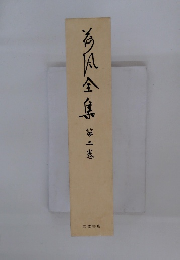 荷風全集
第二巻